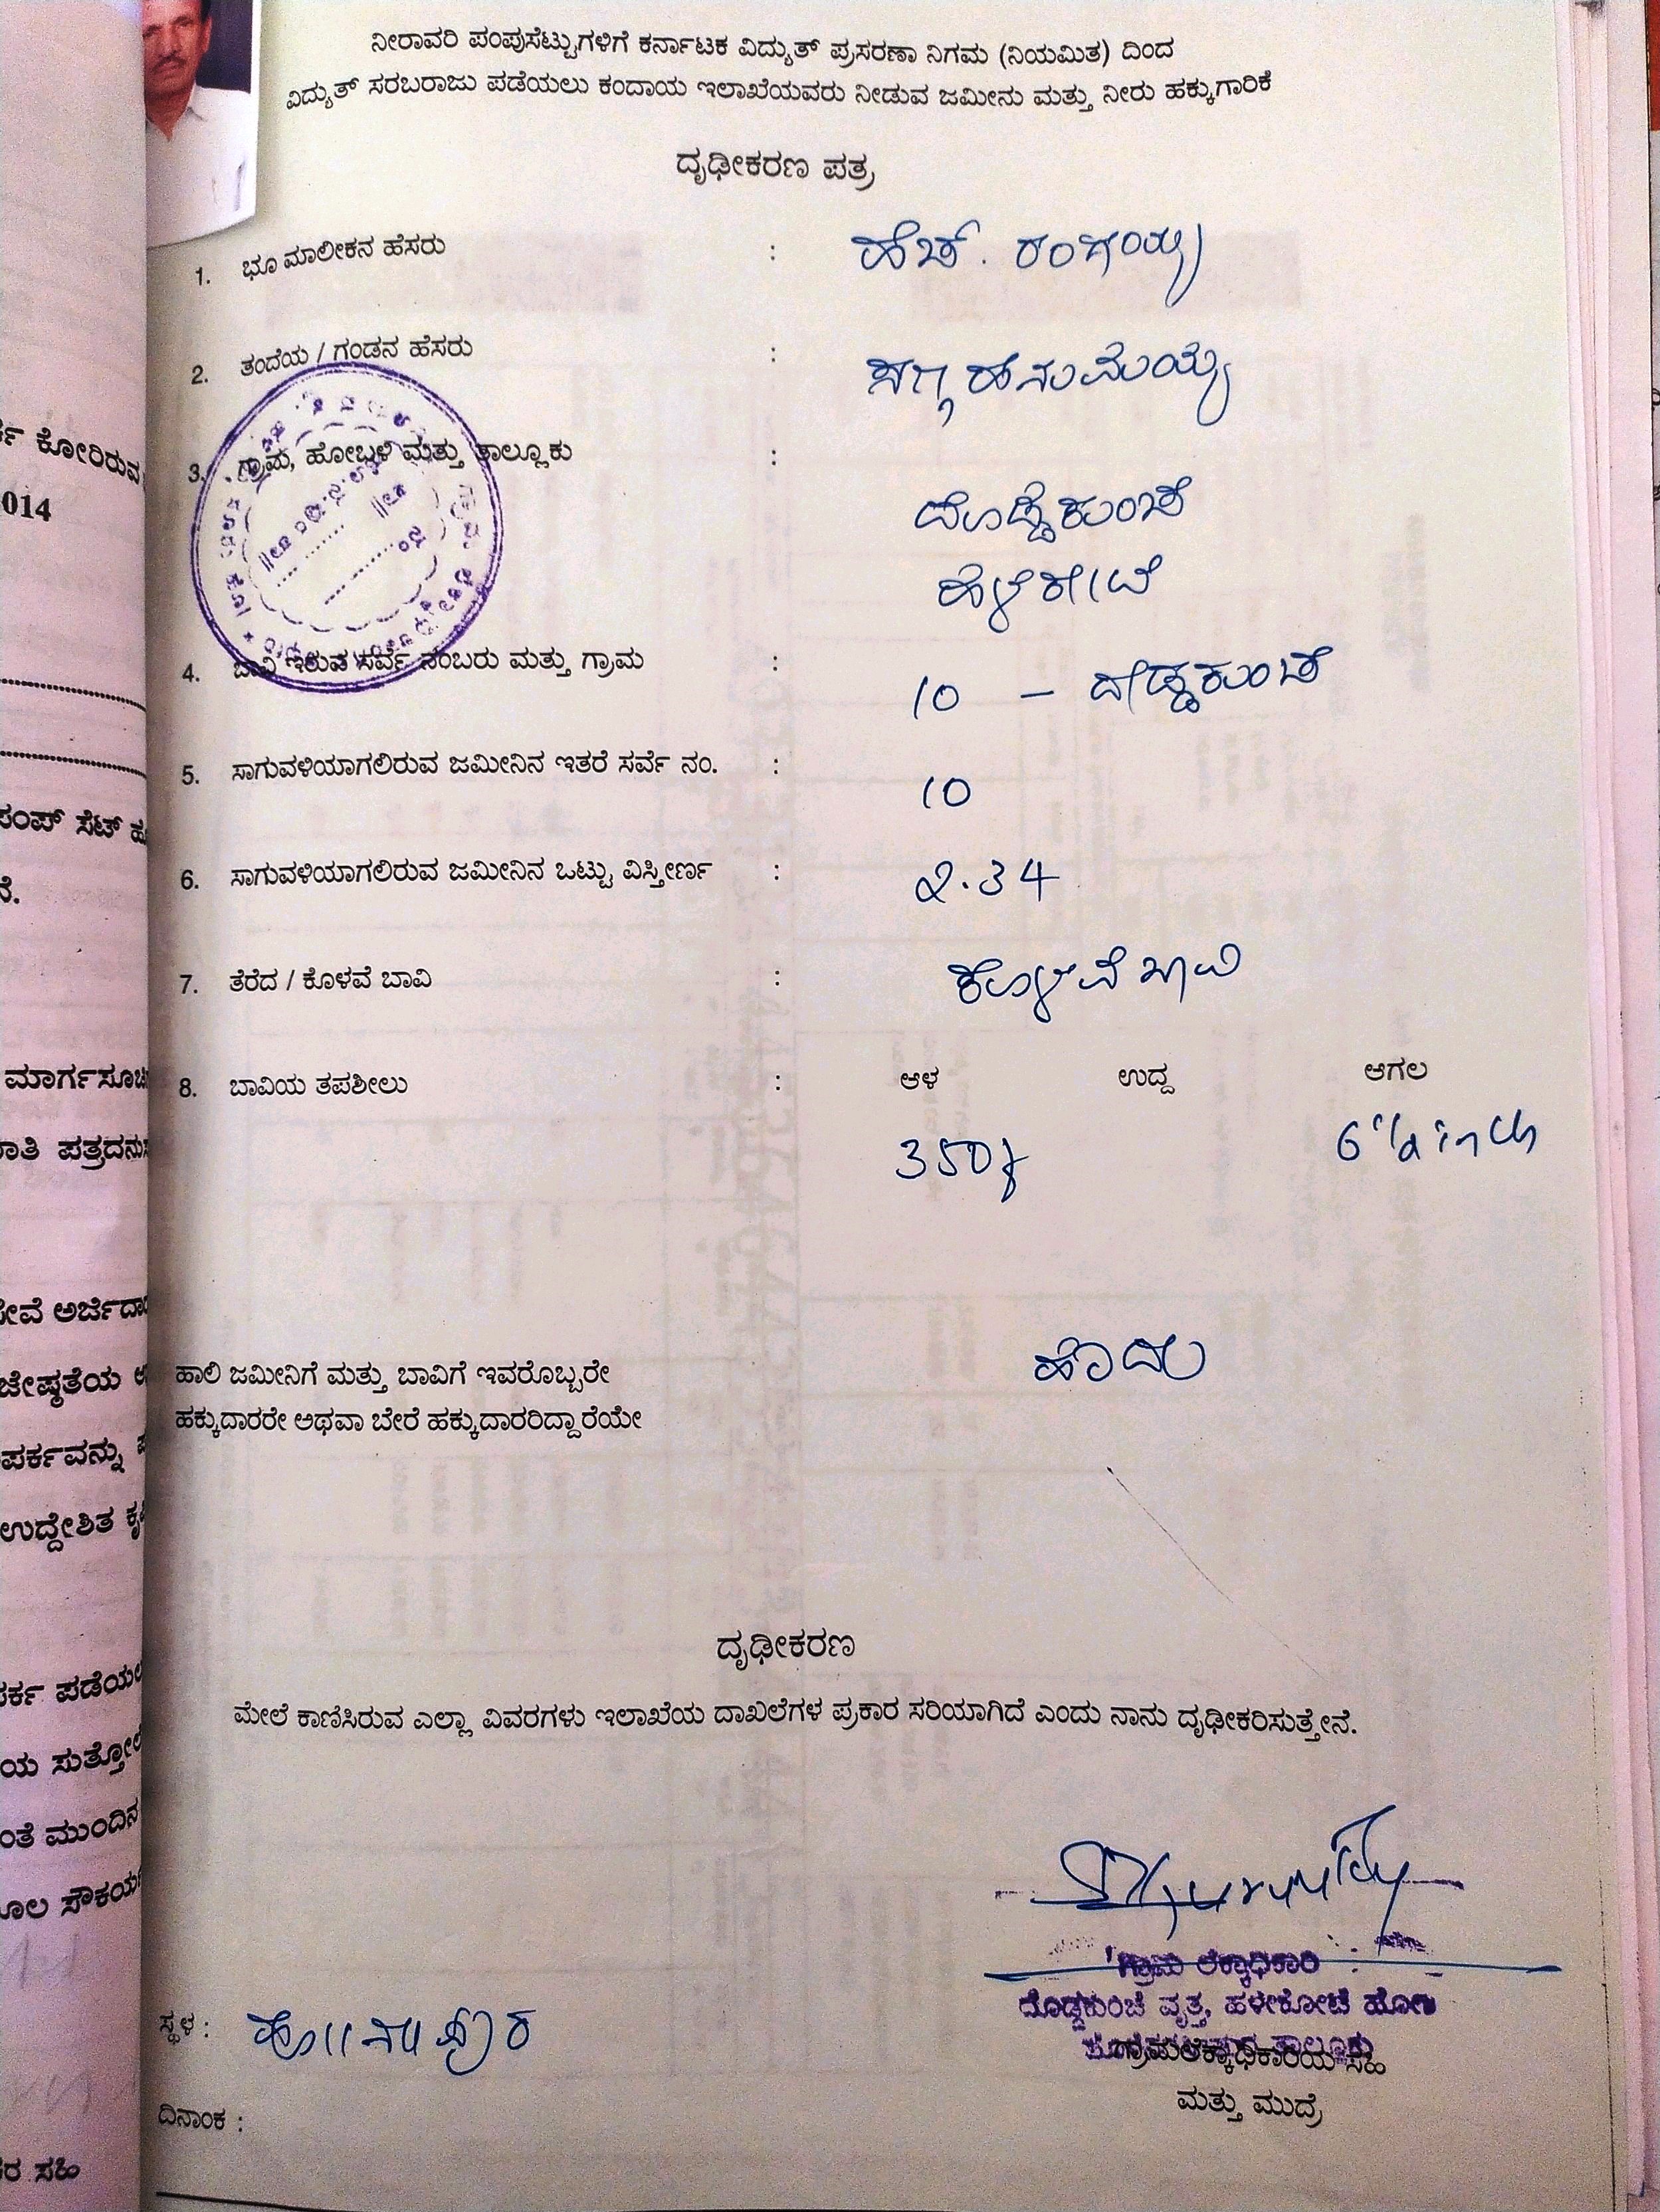 ನೀರಾವರಿ ಪಂಪುಸೆಟ್ಟುಗಳಿಗೆ ಕರ್ನಾಟಕ ವಿದ್ಯುತ್ ಪ್ರಸರಣಾ ನಿಗಮ (ನಿಯಮಿತ) ದಿಂದ
ವಿದ್ಯುತ್ ಸರಬರಾಜು ಪಡೆಯಲು ಕಂದಾಯ ಇಲಾಖೆಯವರು ನೀಡುವ ಜಮೀನು ಮತ್ತು ನೀರು ಹಕ್ಕುಗಾರಿಕೆ
ದೃಢೀಕರಣ ಪತ್ರ
1. ಭೂ ಮಾಲೀಕನ ಹೆಸರು : ಹೆಚ್. ರಂಗಯ್ಯ
2. ತಂದೆಯ / ಗಂಡನ ಹೆಸರು :
3. ಗ್ರಾಮ, ಹೋಬಳಿ ಮತ್ತು ತಾಲ್ಲೂಕು :
ದೊಡ್ಡಕುಂಚೆ
ಹಳೇಕೋಟೆ
4. ಬಾವಿ ಇರುವ ಸರ್ವೆ ನಂಬರು ಮತ್ತು ಗ್ರಾಮ : 10 – ದೊಡ್ಡಕುಂಚೆ
5. ಸಾಗುವಳಿಯಾಗಲಿರುವ ಜಮೀನಿನ ಇತರೆ ಸರ್ವೆ ನಂ. : 10
6. ಸಾಗುವಳಿಯಾಗಲಿರುವ ಜಮೀನಿನ ಒಟ್ಟು ವಿಸ್ತೀರ್ಣ : 2.34
7. ತೆರೆದ / ಕೊಳವೆ ಬಾವಿ : ಕೊಳವೆ ಬಾವಿ
8. ಬಾವಿಯ ತಪಶೀಲು : ಆಳ ಉದ್ದ ಅಗಲ
350f 6½ inch
ಹಾಲಿ ಜಮೀನಿಗೆ ಮತ್ತು ಬಾವಿಗೆ ಇವರೊಬ್ಬರೇ ಹೌದು
ಹಕ್ಕುದಾರರೇ ಅಥವಾ ಬೇರೆ ಹಕ್ಕುದಾರರಿದ್ದಾರೆಯೇ
ದೃಢೀಕರಣ
ಮೇಲೆ ಕಾಣಿಸಿರುವ ಎಲ್ಲಾ ವಿವರಗಳು ಇಲಾಖೆಯ ದಾಖಲೆಗಳ ಪ್ರಕಾರ ಸರಿಯಾಗಿದೆ ಎಂದು ನಾನು ದೃಢೀಕರಿಸುತ್ತೇನೆ.
ಗ್ರಾಮ ಲೆಕ್ಕಾಧಿಕಾರಿ
ದೊಡ್ಡಕುಂಚೆ ವೃತ್ತ, ಹಳೇಕೋಟೆ ಹೋ||
ಗ್ರಾಮಲೆಕ್ಕಾಧಿಕಾರಿಯ ಸಹಿ
ಮತ್ತು ಮುದ್ರೆ
ಸ್ಥಳ : ಹೊ||ನ||ಪುರ
ದಿನಾಂಕ :
ಕೋರಿರುವ
014
ಪಂಪ್ ಸೆಟ್
ಮಾರ್ಗಸೂಚಿ
ಸುತ್ತೋಲೆ
ಉದ್ದೇಶಿತ
ಸಹಿ